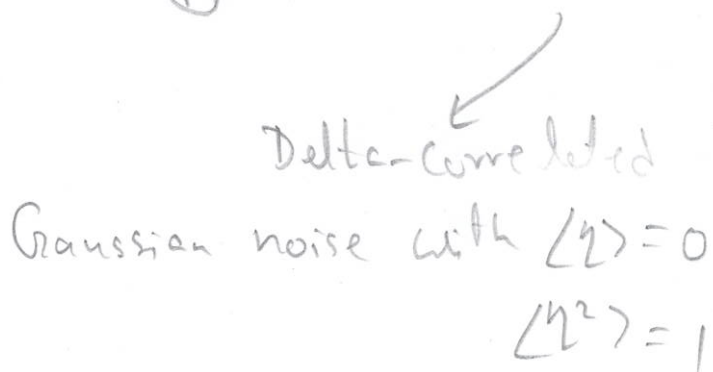 Delta-correlated
Gaussian noise with ⟨η⟩=0
⟨η²⟩=1